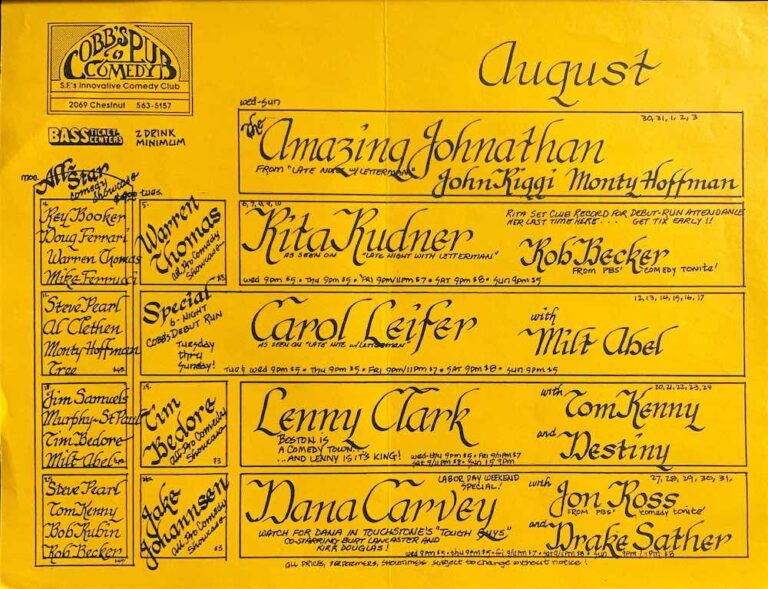 COBB'S PUB
COMEDY
S.F.'s Innovative Comedy Club
2069 Chestnut 563-5157
BASS TICKET CENTERS
2 DRINK
MINIMUM
August
wed-sun
30, 31, 1, 2, 3
The Amazing Johnathan
FROM "LATE NITE W/ LETTERMAN"
John Riggi Monty Hoffman
mon.
All-Star
Comedy Showcase
tues.
4.
Rey Booker
Doug Ferrari
Warren Thomas
Mike Ferrucci
5.
Warren
Thomas
All Pro Comedy
Showcase
$3
6, 7, 8, 9, 10
Rita Rudner
AS SEEN ON "LATE NIGHT WITH LETTERMAN"
RITA SET CLUB RECORD FOR DEBUT-RUN ATTENDANCE
HER LAST TIME HERE.... GET TIX EARLY!!
Rob Becker
FROM PBS' "COMEDY TONITE"
wed 9pm $5 • Thu 9pm $5 • Fri 9pm/11pm $7 • SAT 9pm $8 • Sun 9pm $5
11.
Steve Pearl
Al Clethen
Monty Hoffman
Tree
Special
6-NIGHT
COBB'S DEBUT RUN
Tuesday
thru
Sunday!
12, 13, 14, 15, 16, 17
Carol Leifer
AS SEEN ON "LATE NITE W/ LETTERMAN"
with
Milt Abel
Tue & wed 9pm $5 • Thu 9pm $5 • Fri 9pm/11pm $7 • SAT 9pm $8 • Sun 9pm $5
18.
Jim Samuels
Murphy-St Paul
Tim Bedore
Milt Abel
19.
Tim
Bedore
All Pro Comedy
Showcase
$3
20, 21, 22, 23, 24
Lenny Clark
BOSTON IS
A COMEDY TOWN...
...AND LENNY IS IT'S KING!
wed-thu 9pm $5 • Fri 9/11pm $7
SAT 9/11pm $8 • Sun 9pm
with
Tom Kenny
and
Destiny
25.
Steve Pearl
Tom Kenny
Bob Rubin
Rob Becker
26.
Jake
Johannsen
All Pro Comedy
Showcase
$3
LABOR DAY WEEKEND
SPECIAL!
27, 28, 29, 30, 31,
Dana Carvey
WATCH FOR DANA IN TOUCHSTONE'S "TOUGH GUYS"
CO-STARRING BURT LANCASTER AND
KIRK DOUGLAS!
with
Jon Ross
FROM PBS' "comedy tonite"
and
Drake Sather
wed 9pm $5 • thu 9pm $5 • fri 9/11pm $7 • sat 9/11pm $8 • sun 9pm/11pm $8
ALL PRICES, PERFORMERS, SHOWTIMES subject to change without notice!